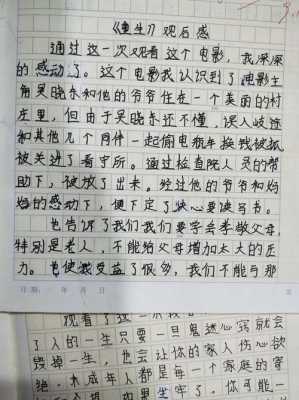 《重生》观后感
通过这一次观看这个电影，我深深
的感动了。这个电影我认识到了电影主
角吴晓东和他的爷爷住在一个美丽的村
庄里，但由于吴晓东还不懂，误入歧途
和其他几个同伴一起偷电瓶车换钱被抓
被关进了看守所。通过检查院人员的帮
助下，被放了出来。经过他的爷爷和妈
妈的感动下，便下定了决心要读写书。
也告诉了我们我们要学会孝敬父母，
特别是老人，不能给父母增加太大的压
力。也使我受益了很多，我们不能与那
日期： 年 月 日
观看了这一
了人的一生只要一旦鬼迷心窍就会
毁掉一生，也会让你的家人伤心欲
绝，未成年人都是每一个家庭的寄
里坐牢了，你可能一